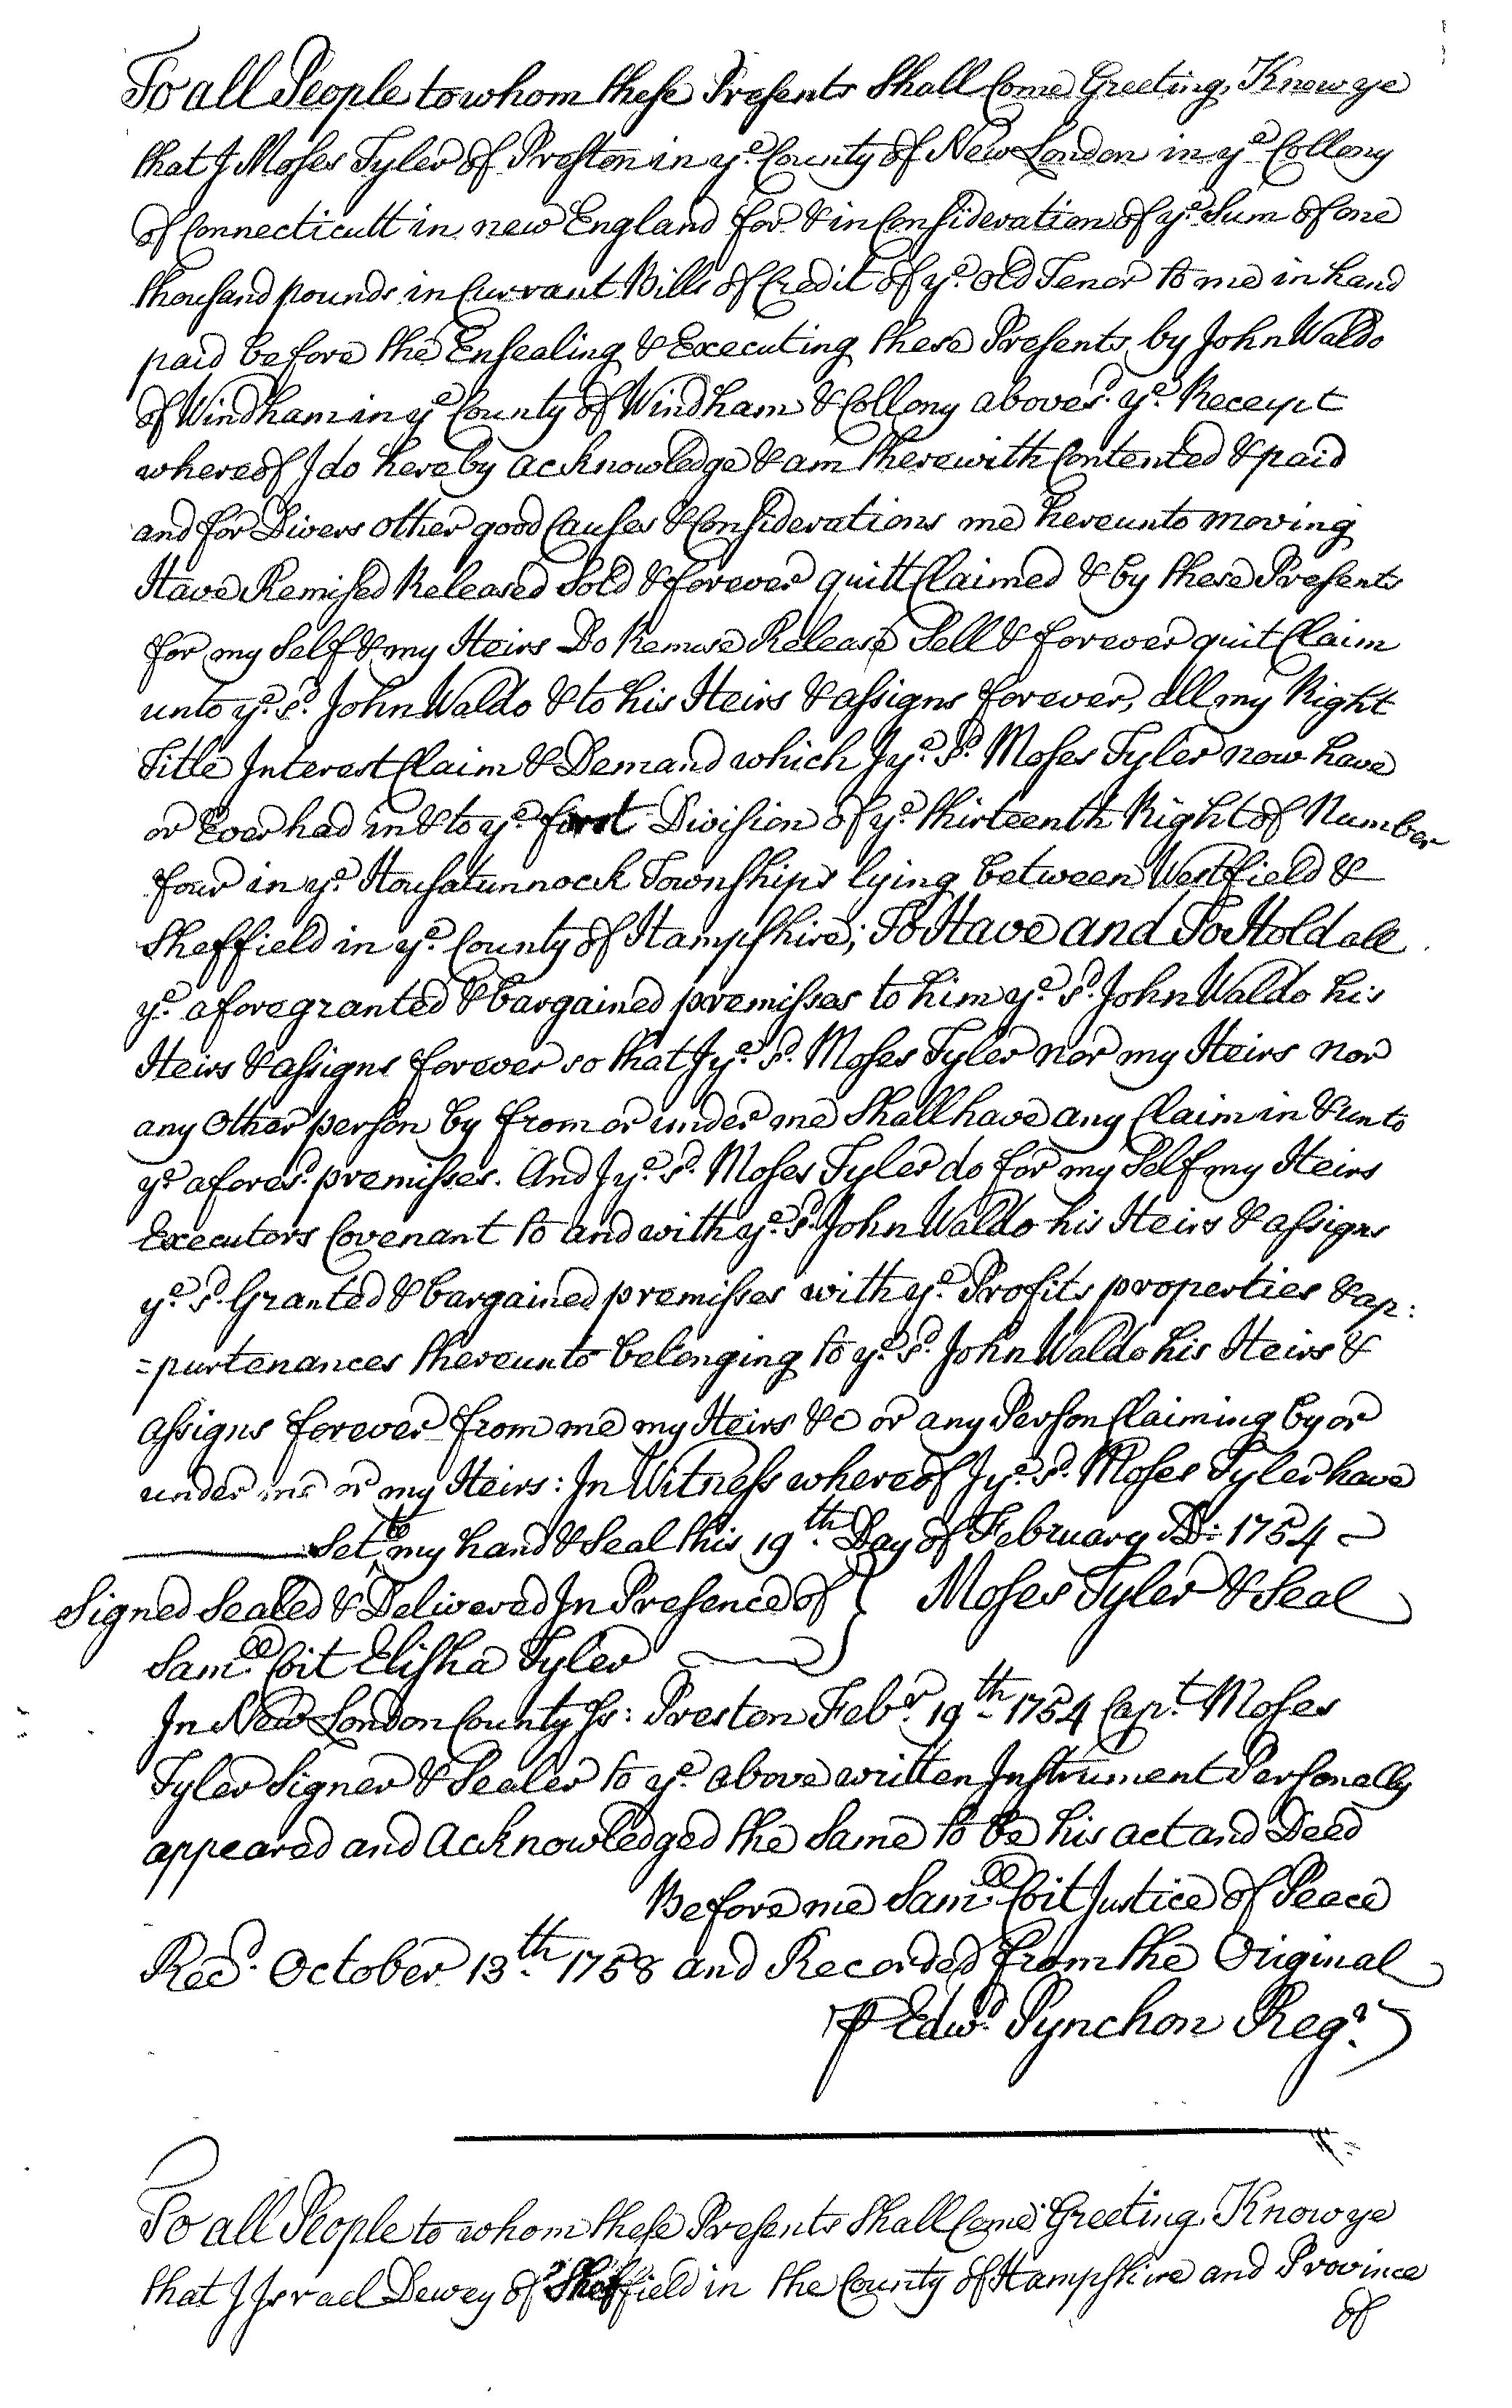 To all People to whom these Presents Shall Come Greeting, Know ye
that I Moses Tyler of Preston in ye. County of New London in ye. Collony
of Connecticutt in new England for & in Consideration of ye. Sum of one
thousand pounds in Currant Bills of Credit of ye. old Tenor to me in hand
paid before the Ensealing & Executing these Presents by John Waldo
of Windham in ye. County of Windham & Collony abovesd. ye. Receipt
whereof I do hereby acknowledge & am therewith Contented & paid
and for Divers other good Causes & Considerations me hereunto moving
Have Remised Released Sold & forever quitt Claimed & by these Presents
for my Self & my Heirs Do Remise Release Sell & forever quit Claim
unto ye. sd. John Waldo & to his Heirs & assigns forever, all my Right
Title Interest Claim & Demand which I ye. sd. Moses Tyler now have
or Ever had in & to ye. first Division of ye. thirteenth Right of Number
four in ye. Housatunnock Townships lying between Westfield &
Sheffield in ye. County of Hampshire; To Have and To Hold all
ye. aforegranted & bargained premisses to him ye. sd. John Waldo his
Heirs & assigns forever so that I ye. sd. Moses Tyler nor my Heirs nor
any other person by from or under me Shall have any Claim in & unto
ye. aforesd. premisses. And I ye. sd. Moses Tyler do for my Self my Heirs
Executors Covenant to and with ye. sd. John Waldo his Heirs & assigns
ye. sd. Granted & bargained premisses with ye. Profits properties & ap:
=purtenances thereunto belonging to ye. sd. John Waldo his Heirs &
assigns forever from me my Heirs &c or any Person Claiming by or
under me or my Heirs: In Witness whereof I ye. sd. Moses Tyler have
Set to my hand & Seal this 19th. Day of February AD: 1754
Signed Sealed & Delivered In Presence of } Moses Tyler & Seal
Samll. Coit Elisha Tyler
In New London County Ss: Preston Febr. 19th 1754 Capt. Moses
Tyler Signer & Sealer to ye. above written Instrument Personally
appeared and Acknowledged the Same to be his act and Deed
Before me Samll. Coit Justice of Peace
Recd. October 13th. 1758 and Recorded from the Original
⅌ Edwd. Pynchon Regr.
To all People to whom these Presents Shall Come Greeting, Know ye
that I Israel Dewey of Sheffield in the County of Hampshire and Province
of